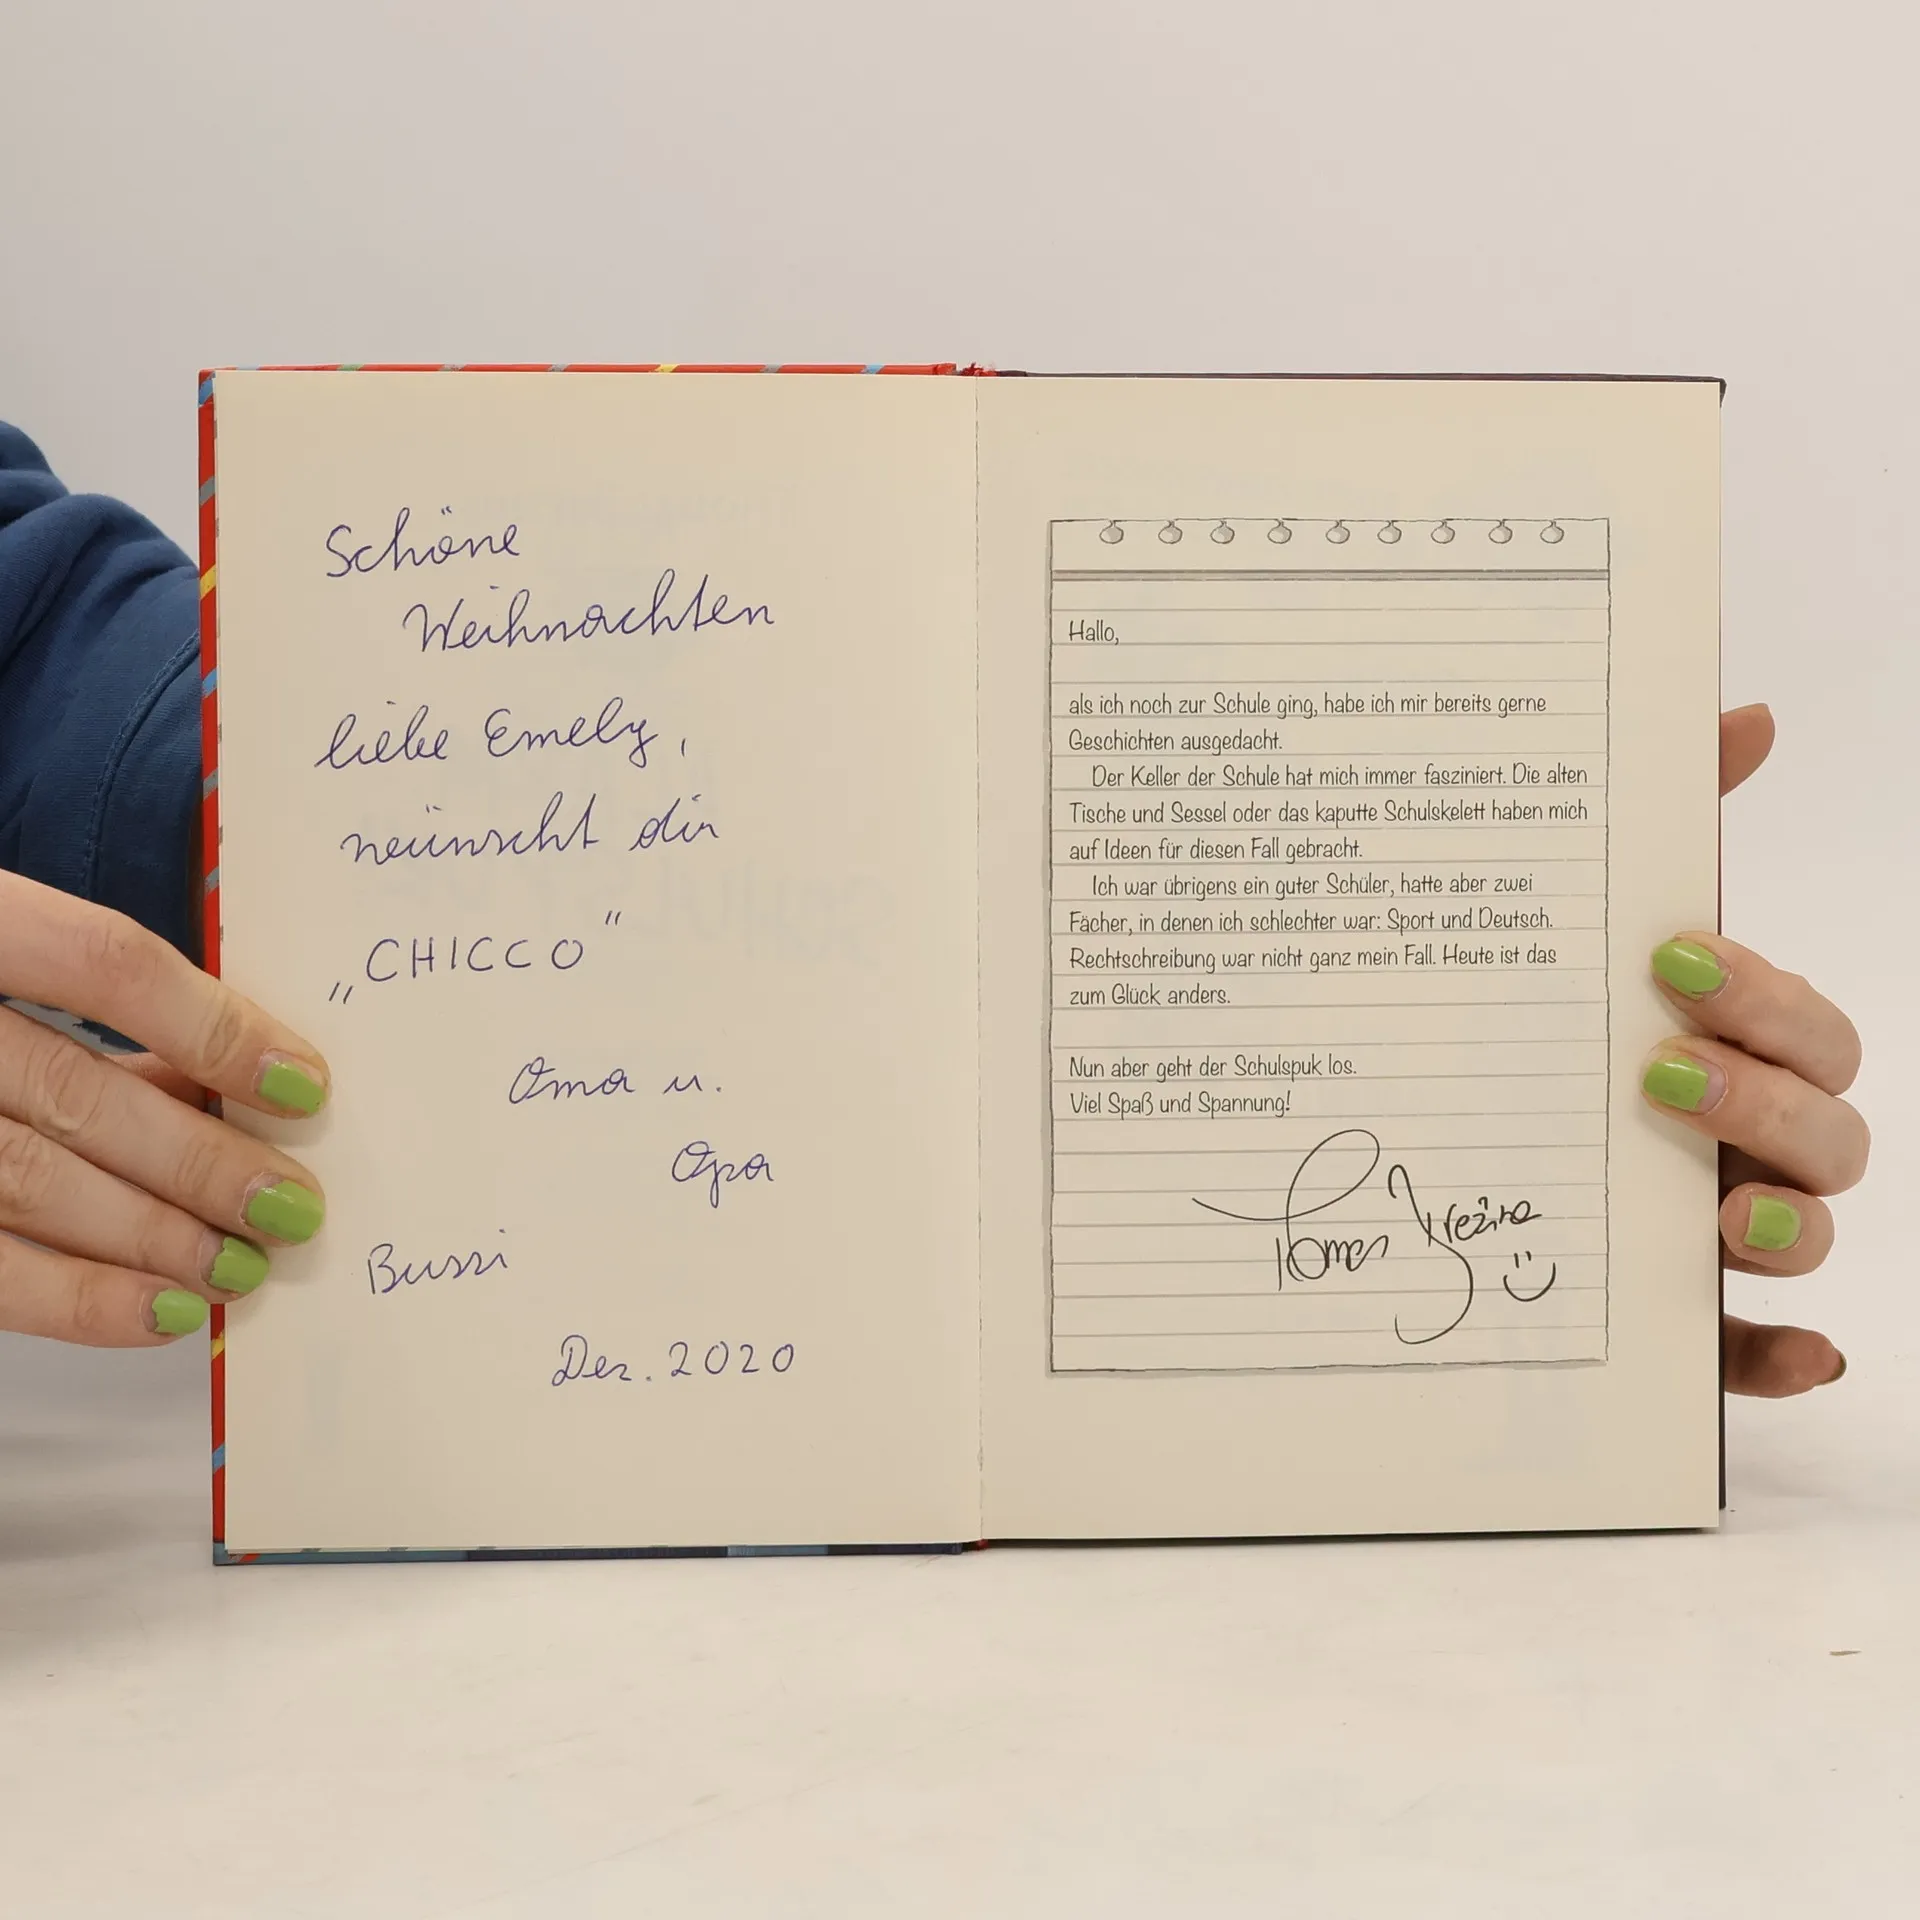 Schöne
Weihnachten
liebe Emely,
wünscht dir
„CHICCO"
Oma u.
Opa
Bussi
Dez. 2020
Hallo,
als ich noch zur Schule ging, habe ich mir bereits gerne
Geschichten ausgedacht.
Der Keller der Schule hat mich immer fasziniert. Die alten
Tische und Sessel oder das kaputte Schulskelett haben mich
auf Ideen für diesen Fall gebracht.
Ich war übrigens ein guter Schüler, hatte aber zwei
Fächer, in denen ich schlechter war: Sport und Deutsch.
Rechtschreibung war nicht ganz mein Fall. Heute ist das
zum Glück anders.
Nun aber geht der Schulspuk los.
Viel Spaß und Spannung!
Thomas Brezina